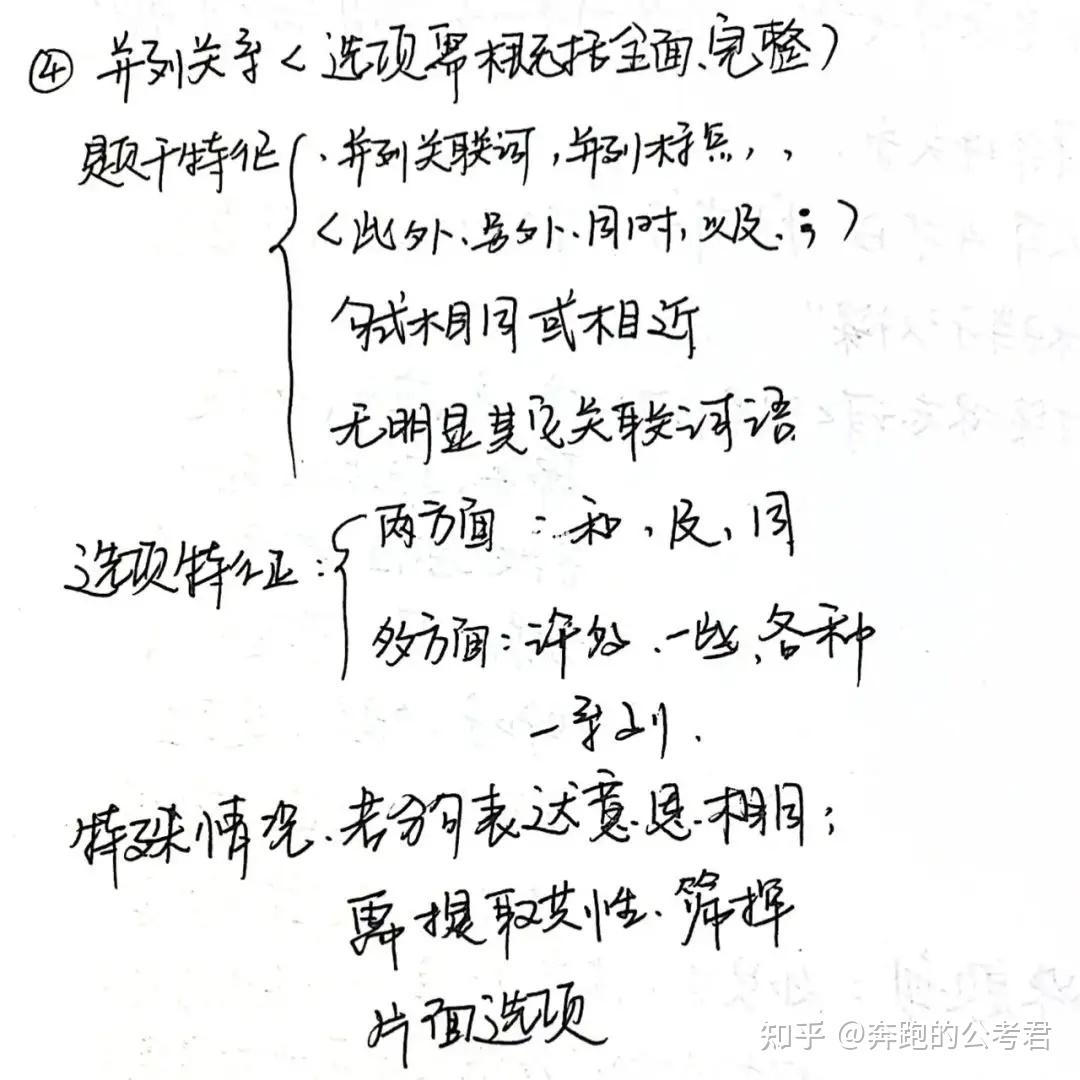 ④ 并列关系<选项需概括全面、完整>
题干特征 、并列关联词,并列标点,,
<此外、另外、同时,以及、;>
句式相同或相近
无明显其它关联词语
选项特征: 两方面:和、及、同
多方面:许多、一些、各种
一系列.
特殊情况、若分句表达意思相同;
需提取共性、筛择
片面选项
知乎 @奔跑的公考君